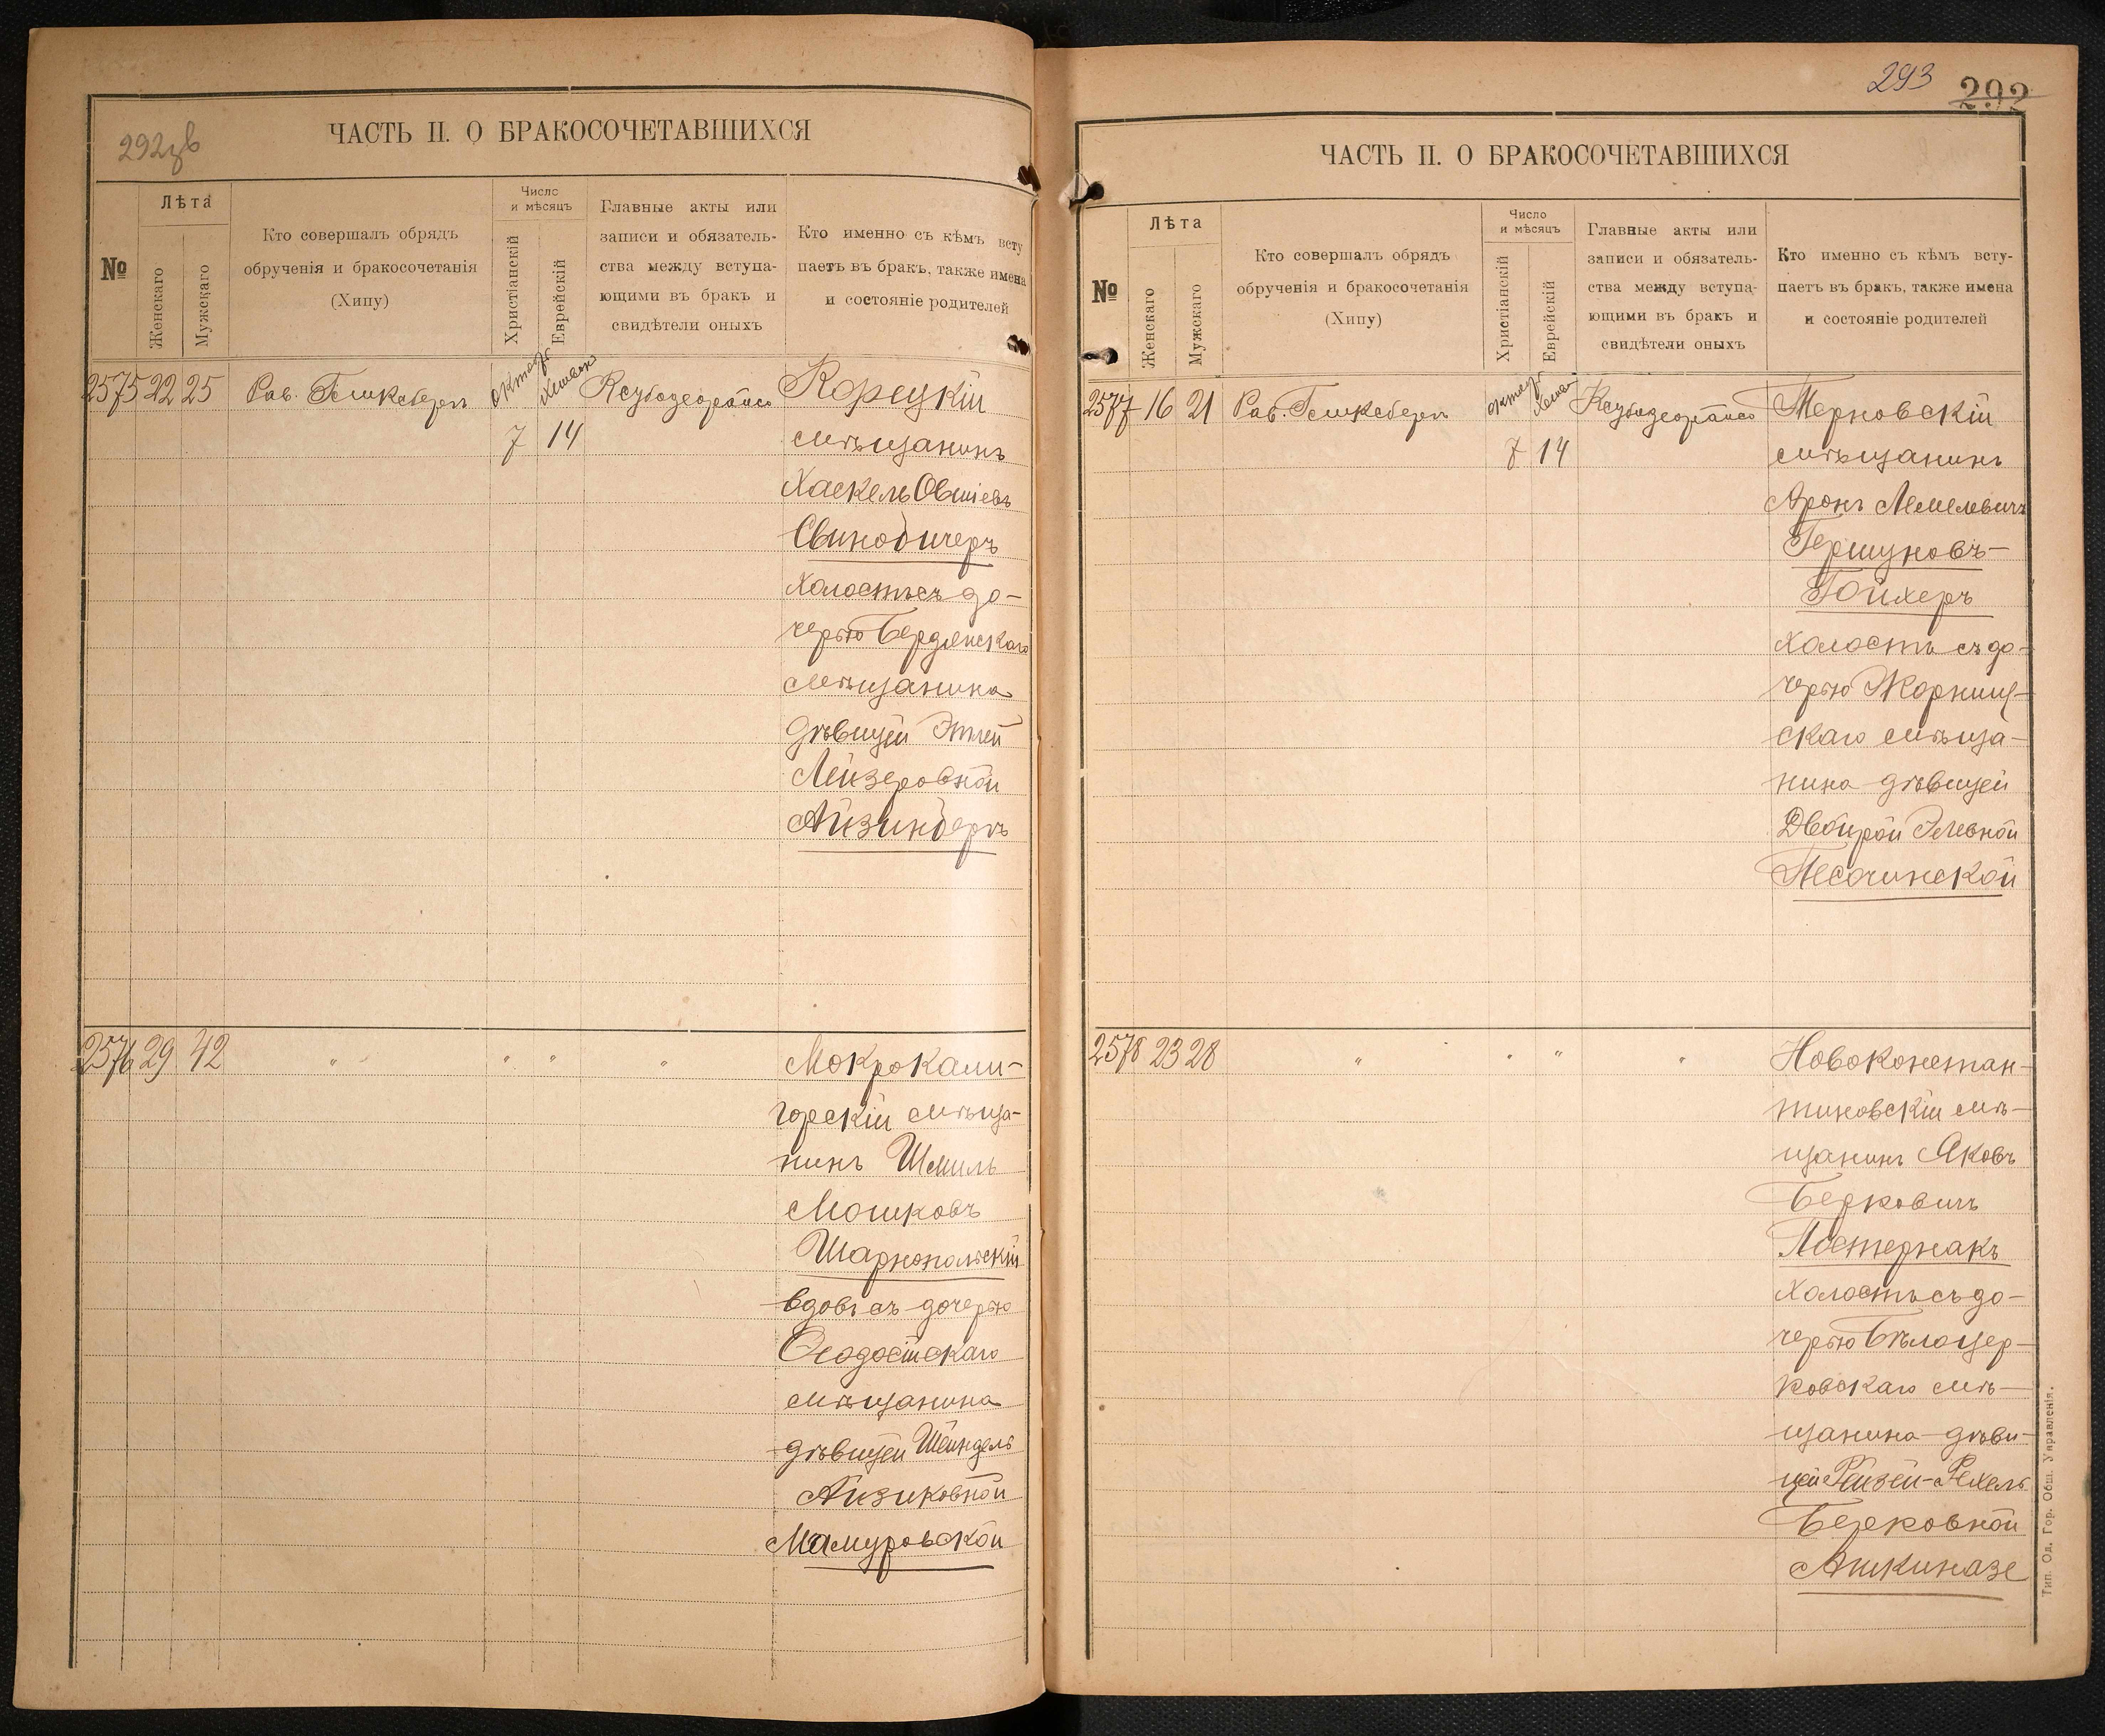 292 об
ЧАСТЬ II. О БРАКОСОЧЕТАВШИХСЯ
№
Лѣта
Женскаго
Мужскаго
Кто совершалъ обрядъ
обрученія и бракосочетанія
(Хипу)
Число
и мѣсяцъ
Христіанскій
Еврейскій
Главные акты или
записи и обязатель-
ства между вступа-
ющими въ бракъ и
свидѣтели оныхъ
Кто именно съ кѣмъ всту
паетъ въ бракъ, также имена
и состояніе родителей
2575 22 25 Рав. октяб. Корецкій
7 14 мѣщанинъ
Хаскель Овшіевъ
Свинобичеръ
холостъ съ до-
черью Бердянскаго
мѣщанина
дѣвицей Этлей
Лейзеровной
Айзинберъ
2576 29 42 " " " " Мокрокали-
горскій мѣща-
нинъ Шмиль
Мошковъ
Шарнопольскій
вдов. съ дочерью
Ѳеодосійскаго
мѣщанина
дѣвицей Шейндель
Айзиковной
Мамуровской
293 292
ЧАСТЬ II. О БРАКОСОЧЕТАВШИХСЯ
№
Лѣта
Женскаго
Мужскаго
Кто совершалъ обрядъ
обрученія и бракосочетанія
(Хипу)
Число
и мѣсяцъ
Христіанскій
Еврейскій
Главные акты или
записи и обязатель-
ства между вступа-
ющими въ бракъ и
свидѣтели оныхъ
Кто именно съ кѣмъ всту-
паетъ въ бракъ, также имена
и состояніе родителей
2577 16 21 Рав. октяб. Терновскій
7 14 мѣщанинъ
Аронъ Лемелевичъ
Гершуновъ-
Гойхеръ
холостъ съ до-
черью Жорнищ-
скаго мѣща-
нина дѣвицей
Двойрой Элевной
Песочинской
2578 23 28 " " " " Новоконстан-
тиновскій мѣ-
щанинъ Яковъ
Берковичъ
Постернакъ
холостъ съ до-
черью Бѣлоцер-
ковскаго мѣ-
щанина дѣви-
цей Рейзей-Рехель
Берковной
Ашкиназе
Тип. Од. Гор. Общ. Управленія.